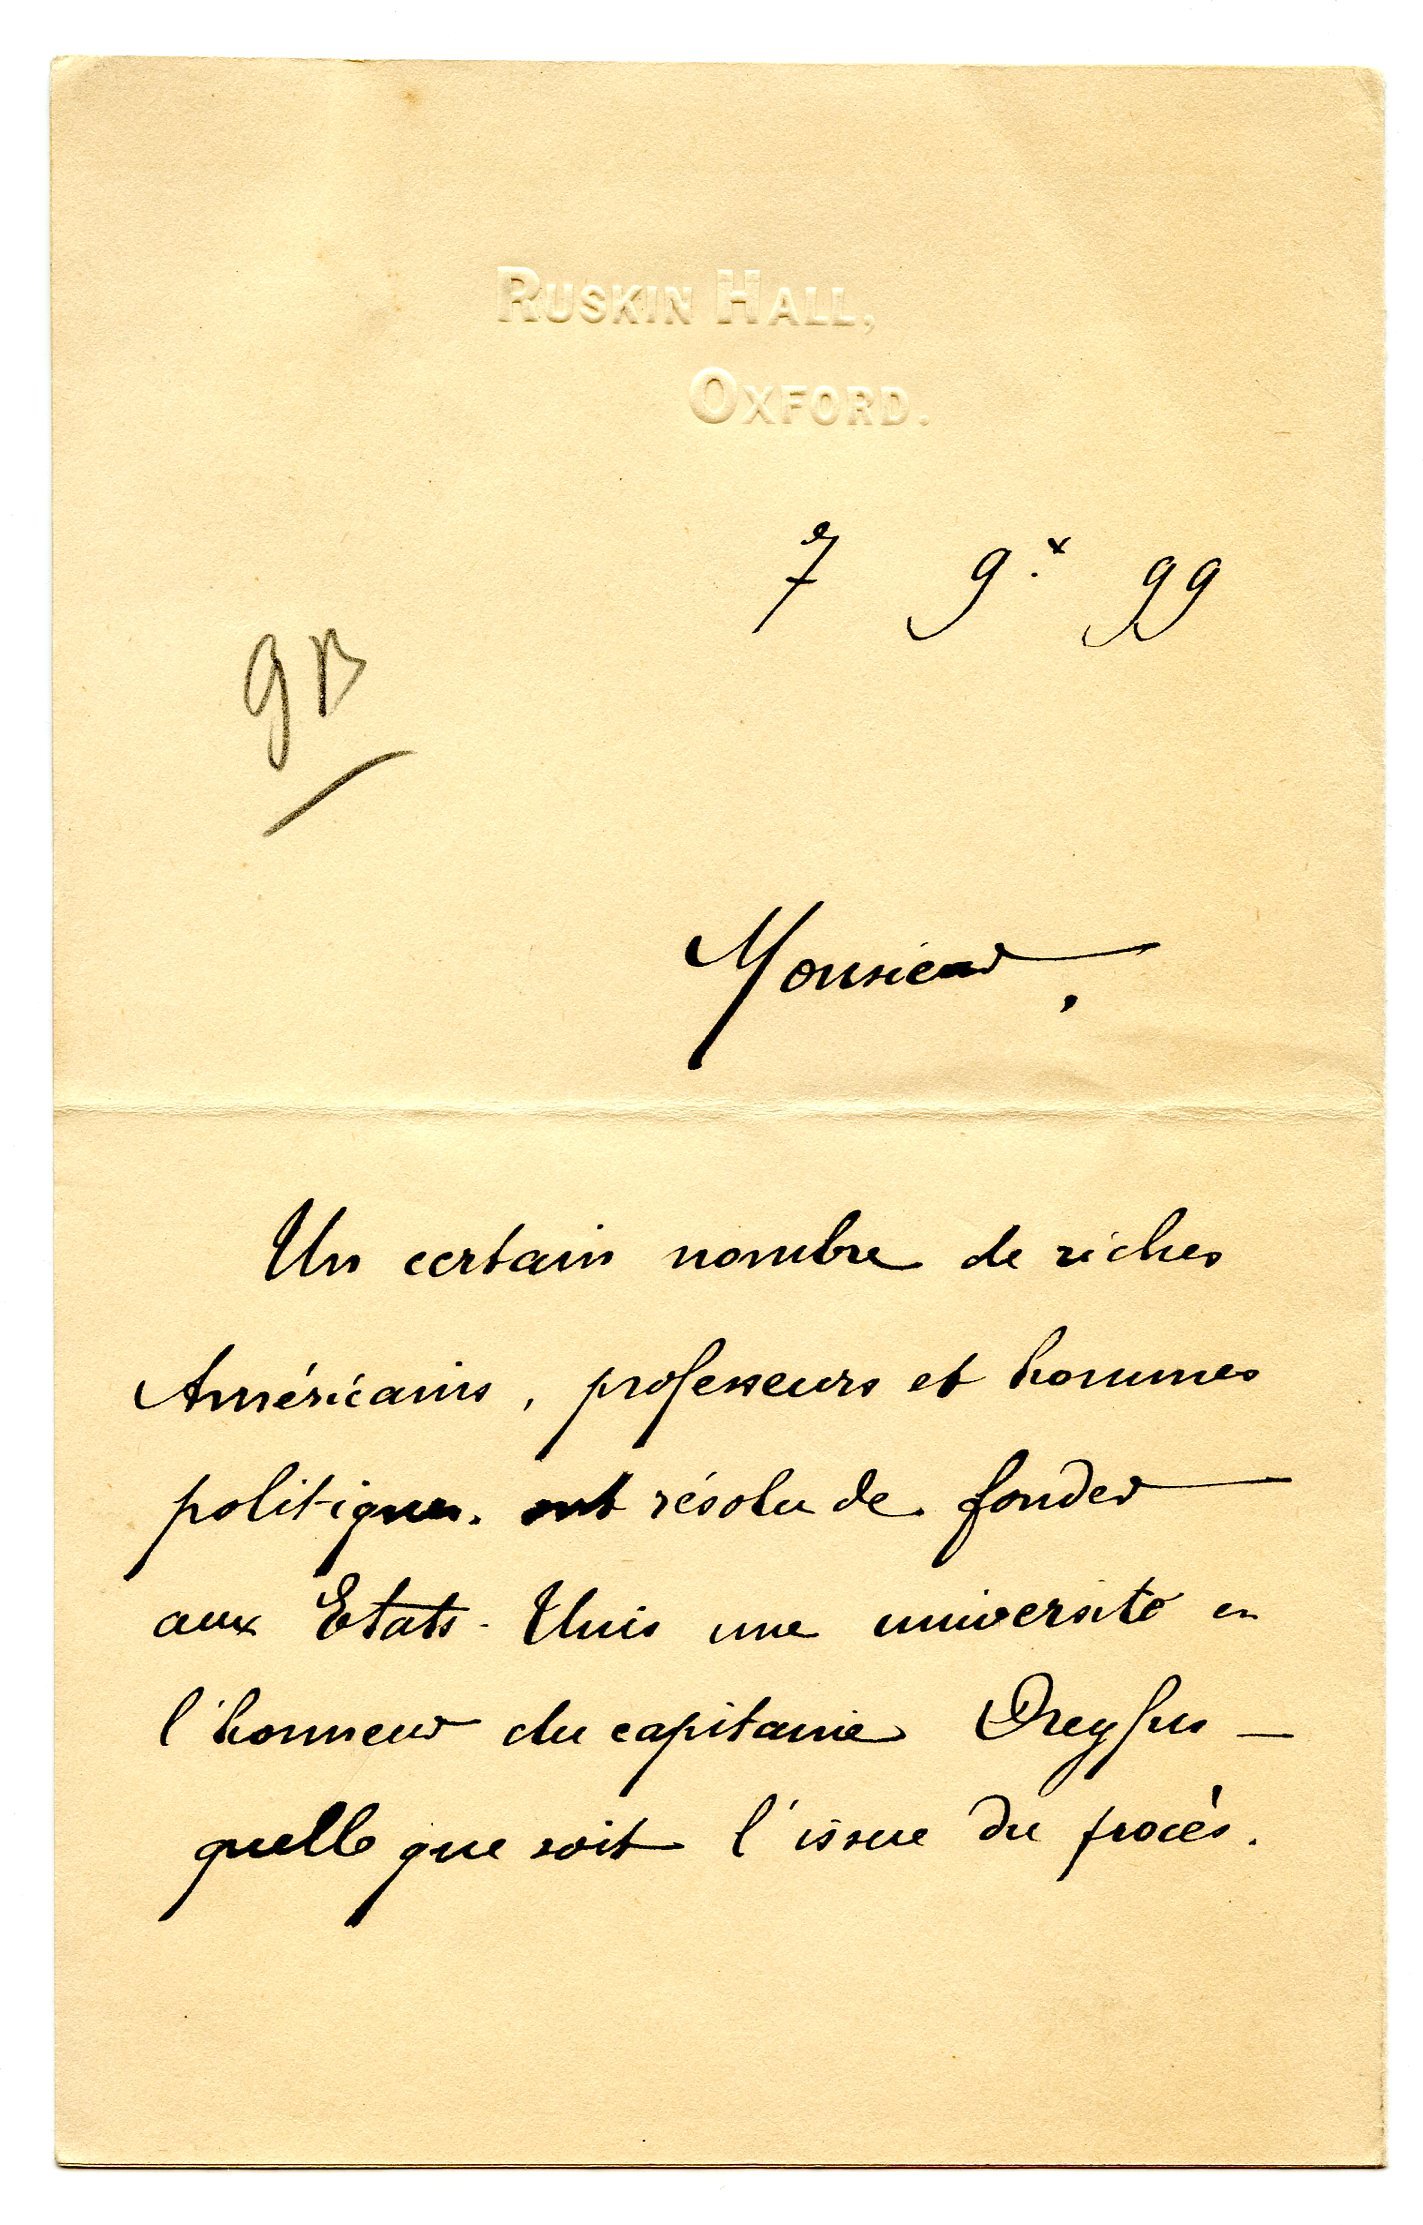 RUSKIN HALL,
OXFORD.
7 9.x 99
GB
Monsieur,
Un certain nombre de riches
Américains, professeurs et hommes
politiques. ont résolu de fonder
aux Etats-Unis une université en
l'honneur du capitaine Dreyfus —
quelle que soit l'issue du procès.